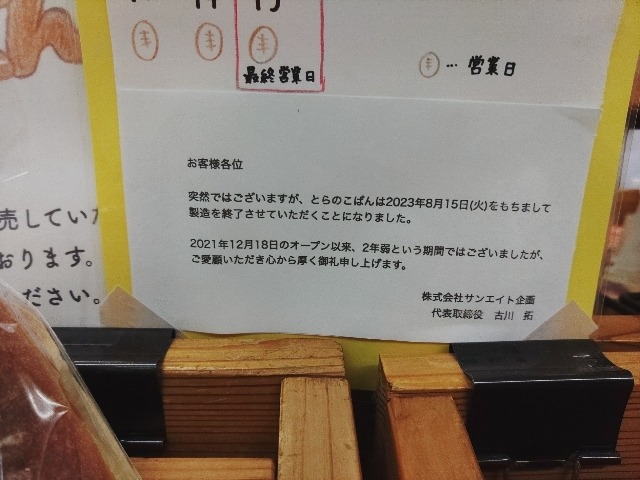 最終営業日
… 営業日
お客様各位
突然ではございますが、とらのこぱんは2023年8月15日(火)をもちまして
製造を終了させていただくことになりました。
2021年12月18日のオープン以来、2年弱という期間ではございましたが、
ご愛顧いただき心から厚く御礼申し上げます。
株式会社サンエイト企画
代表取締役 古川 拓
売してい
おります。
ださい。